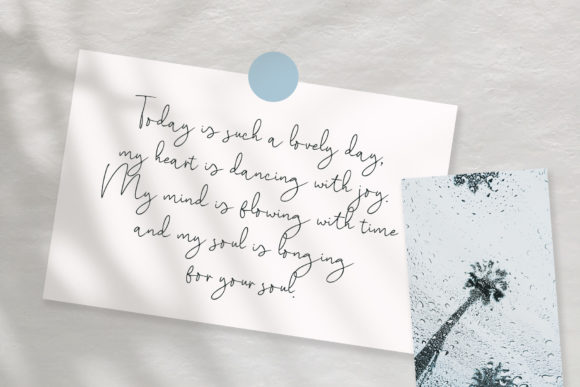 Today is such a lovely day,
my heart is dancing with joy.
My mind is flowing with time
and my soul is longing
for your soul.